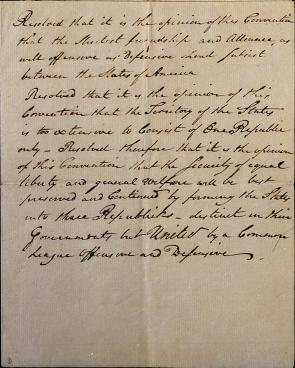 Resolved that it is the opinion of this Convention
that the strictest friendship and Alliance, as
well offensive as Defensive should subsist
between the States of America
Resolved that it is the opinion of this
Convention that the Territory of the States
is too extensive to Consist of One Republic
only – Resolved therefore that it is the opinion
of this Convention that the Security of equal
liberty and general Welfare will be best
preserved and Continued by forming the States
into three Republicks – distinct in their
Governments but United by a Common
League Offensive and Defensive